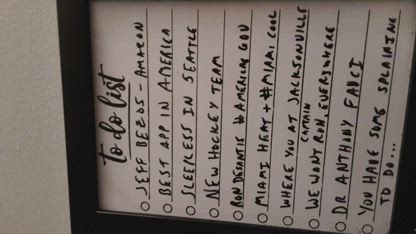 to do list
JEFF BEZOS - AMAZON
BEST APP IN AMERICA
SLEEPLESS IN SEATTLE
NEW HOCKEY TEAM
RON DESANTIS #AMERICAS GOV
MIAMI HEAT + #MIAMI COOL
WHERE YOU AT JACKSONVILLE
CAPTAIN
WE WONT RON, EVERYWHERE
DR ANTHONY FAUCI
YOU HAVE SOME SPLAINING
TO DO...